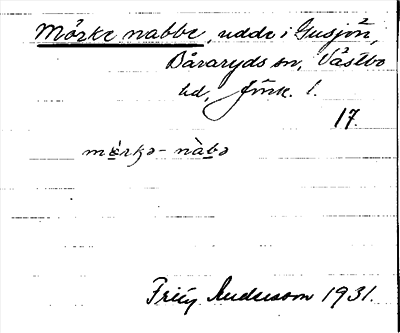 Mörke nabbe, udde i Gusjön,
Båraryds sn, Västbo
hd, Jönk. l.
17.
mörkə-nàbə
Fritz Andersson 1931.